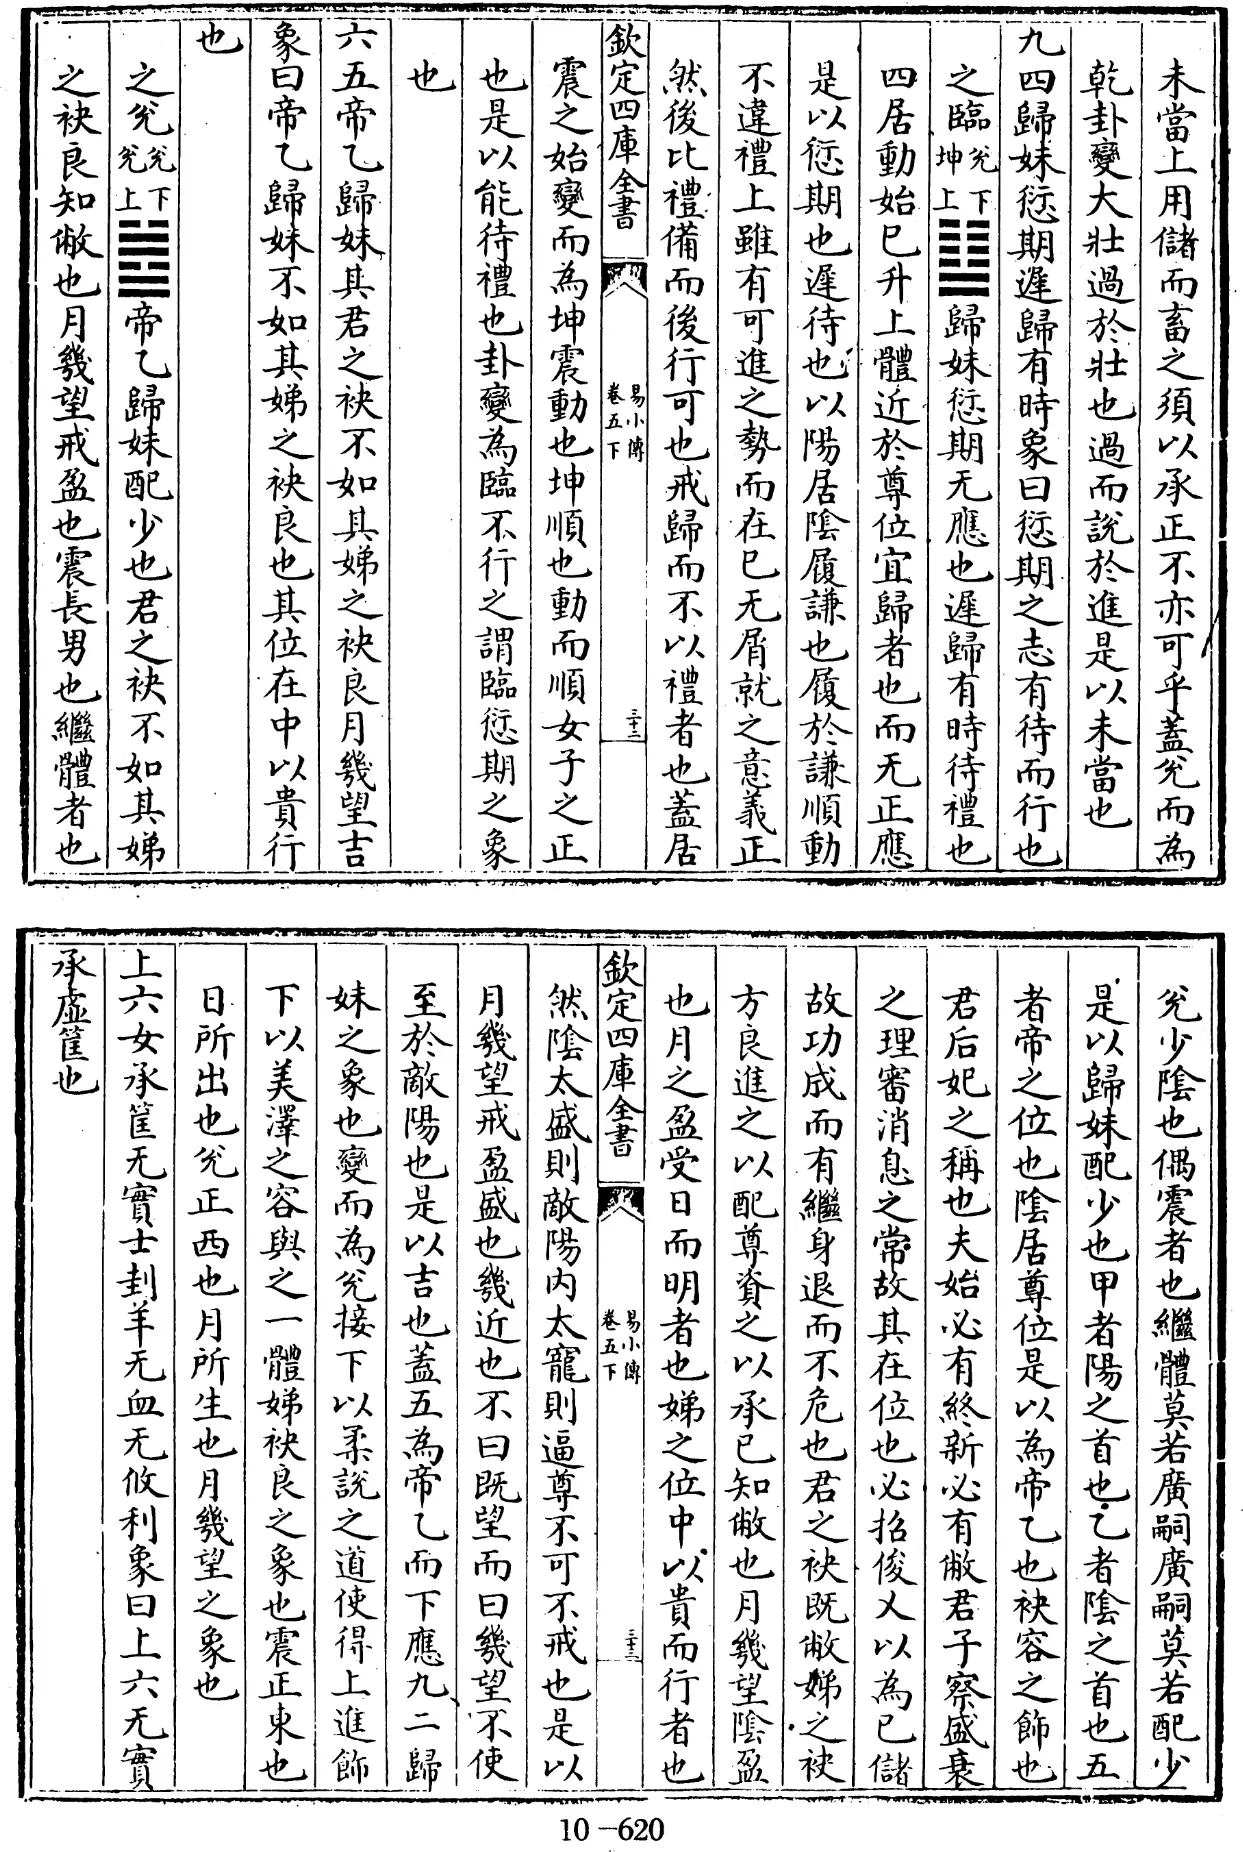 未當上用儲而畜之須以承正不亦可乎蓋兊而為
乾卦變大壯過於壯也過而說於進是以未當也
九四歸妹愆期遲歸有時象曰愆期之志有待而行也
之臨兊下坤上歸妹愆期无應也遲歸有時待禮也
四居動始已升上體近於尊位宜歸者也而无正應
是以愆期也遲待也以陽居陰履謙也履於謙順動
不違禮上雖有可進之勢而在已无屑就之意義正
然後比禮備而後行可也戒歸而不以禮者也蓋居
欽定四庫全書
易小傳
卷五下
三十二
震之始變而為坤震動也坤順也動而順女子之正
也是以能待禮也卦變為臨不行之謂臨愆期之象
也
六五帝乙歸妹其君之袂不如其娣之袂良月幾望吉
象曰帝乙歸妹不如其娣之袂良也其位在中以貴行
也
之兊兊下兊上帝乙歸妹配少也君之袂不如其娣
之袂良知敝也月幾望戒盈也震長男也繼體者也
兊少陰也偶震者也繼體莫若廣嗣廣嗣莫若配少
是以歸妹配少也甲者陽之首也乙者陰之首也五
者帝之位也陰居尊位是以為帝乙也袂容之飾也
君后妃之稱也夫始必有終新必有敝君子察盛衰
之理審消息之常故其在位也必招俊乂以為已儲
故功成而有繼身退而不危也君之袂既敝娣之袂
方良進之以配尊資之以承已知敝也月幾望陰盈
也月之盈受日而明者也娣之位中以貴而行者也
欽定四庫全書
易小傳
卷五下
三十三
然陰太盛則敵陽內太寵則逼尊不可不戒也是以
月幾望戒盈盛也幾近也不曰既望而曰幾望不使
至於敵陽也是以吉也蓋五為帝乙而下應九二歸
妹之象也變而為兊接下以柔說之道使得上進飾
下以美澤之容與之一體娣袂良之象也震正東也
日所出也兊正西也月所生也月幾望之象也
上六女承筐无實士刲羊无血无攸利象曰上六无實
承虛筐也
10-620